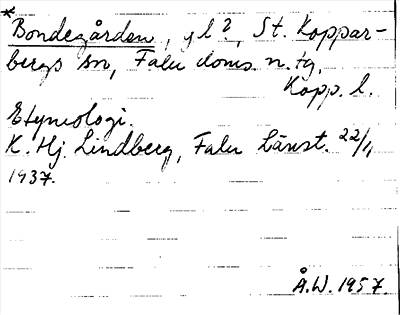 * Bondegården, gl?, St. Koppar-
bergs sn, Falu doms. n. tg,
Kopp. l.
Etymologi.
K. Hj. Lindberg, Falu Länst. 22/1
1937.
Å.W. 1957.